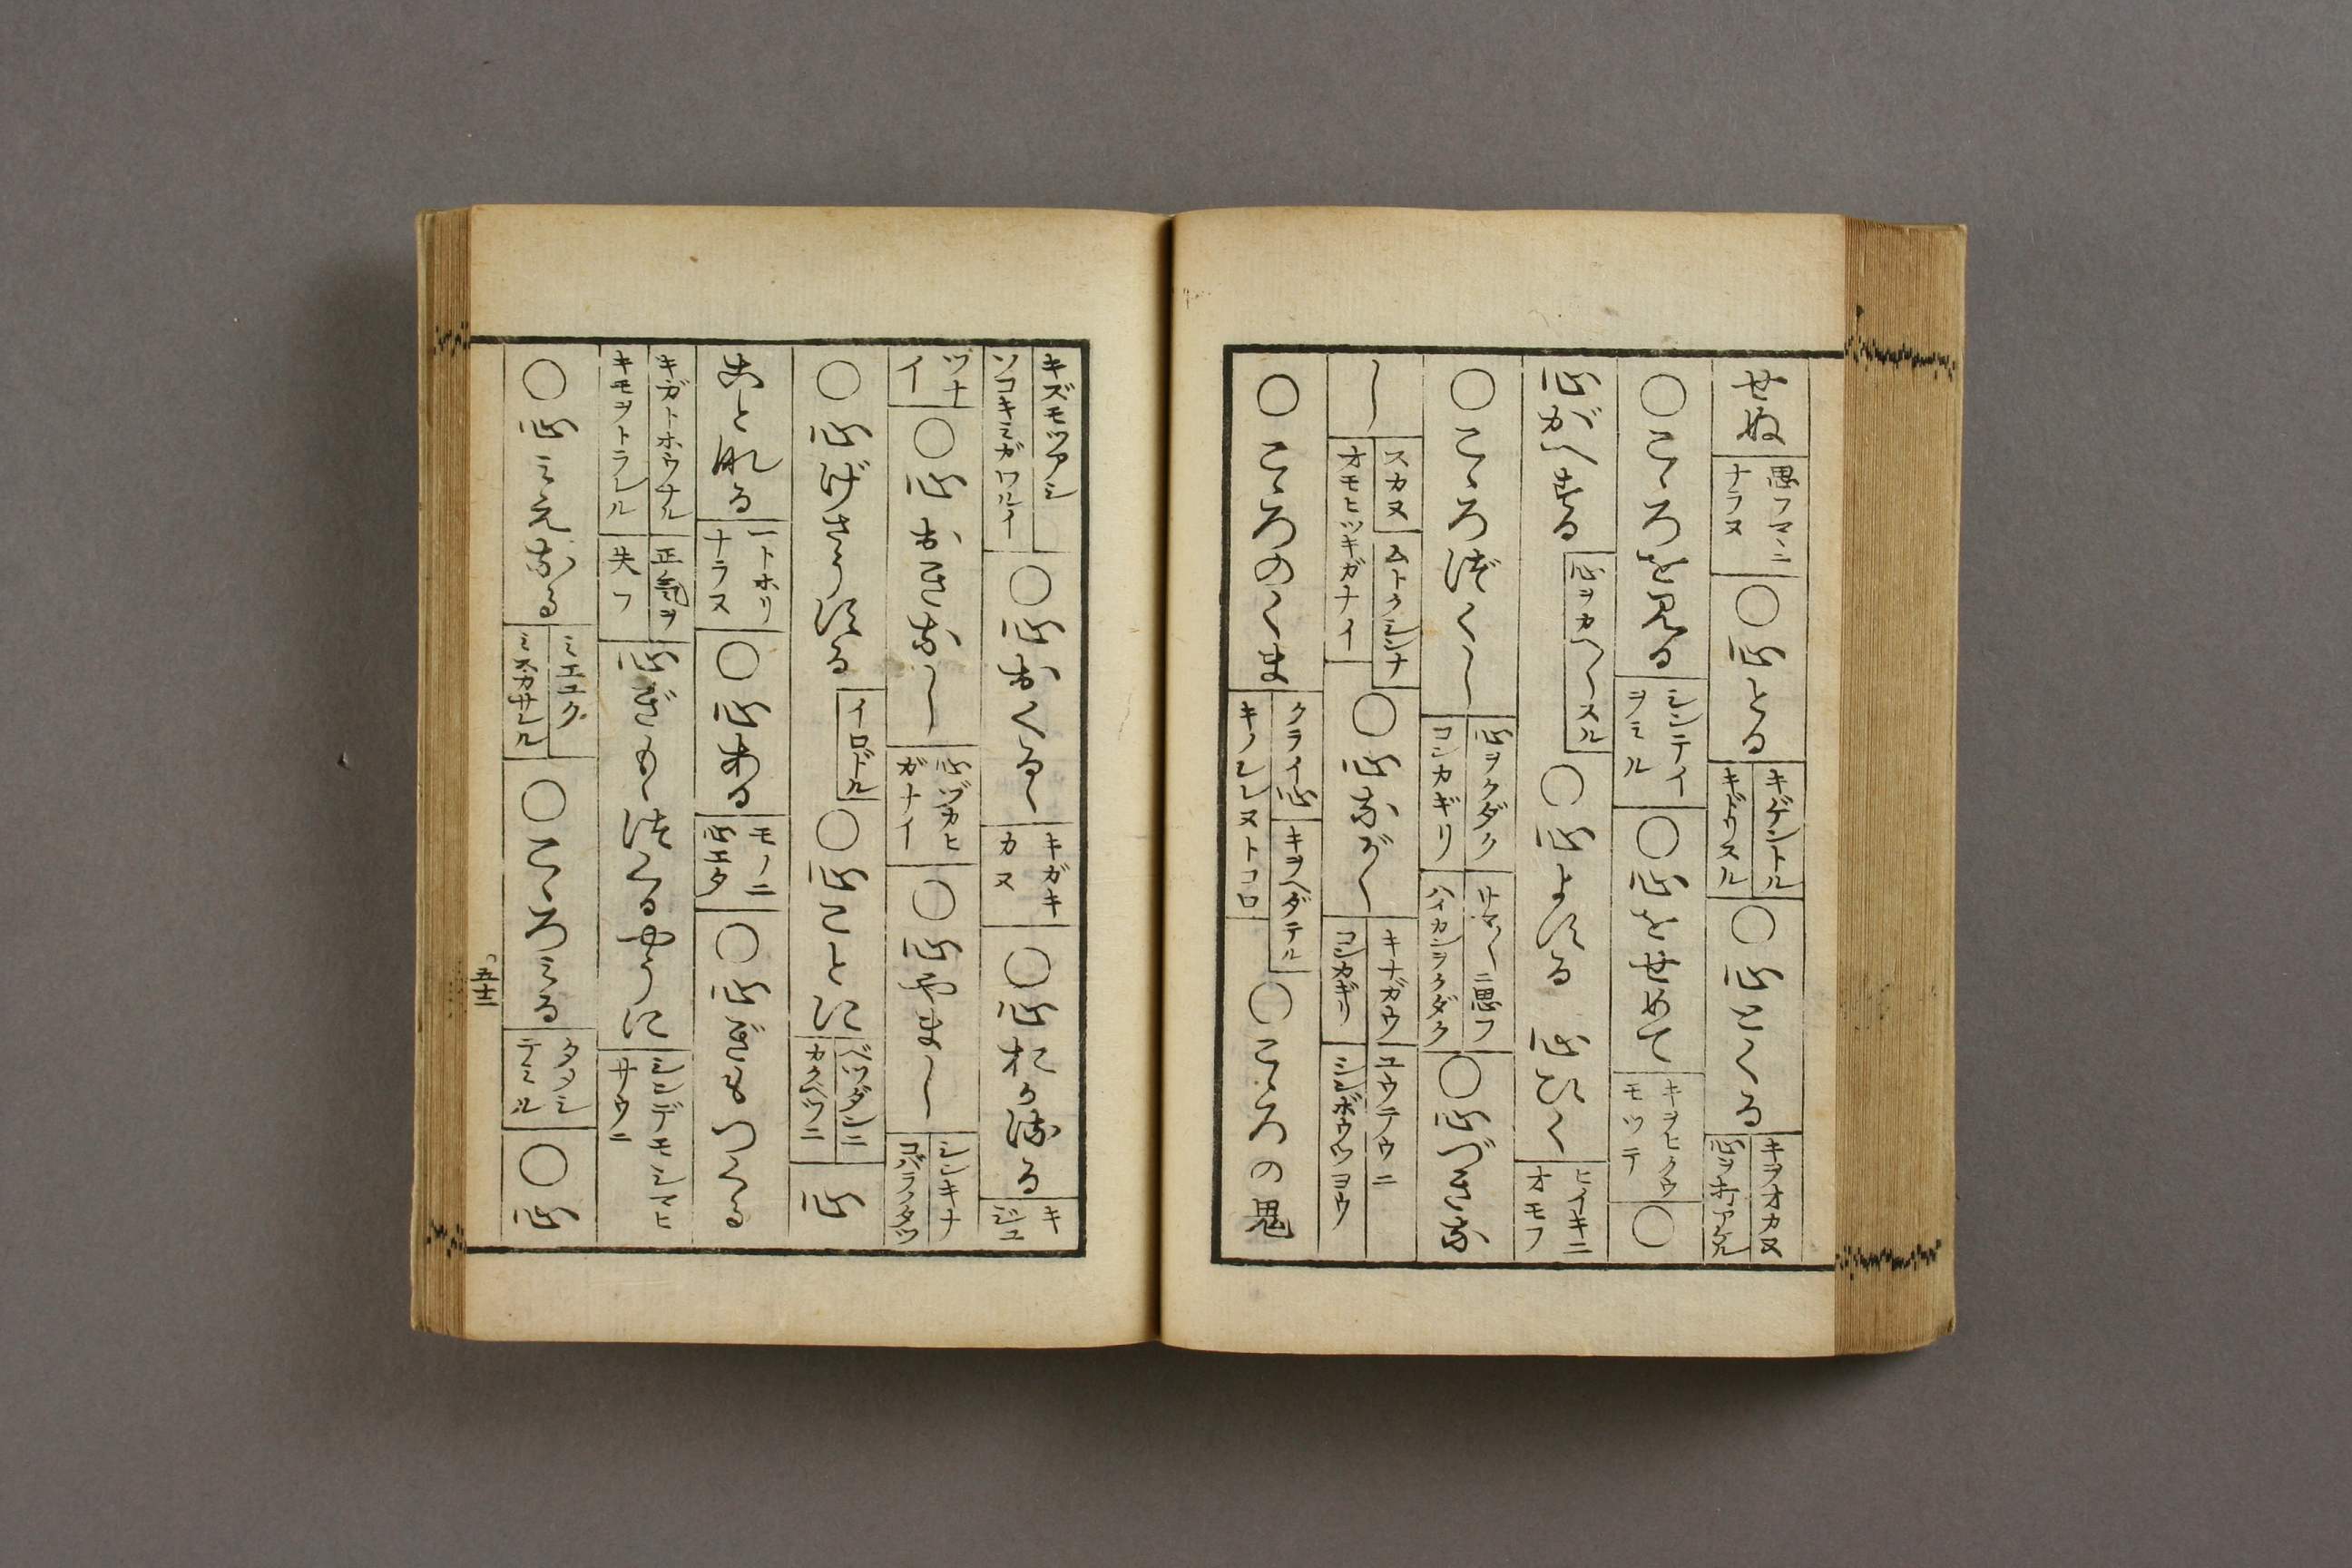 せぬ 思フマヽニ ナラヌ ○心とる キゲントル キドリスル ○心とくる キヲオカヌ
○こゝろを見る シンテイ ヲミル ○心をせめて キヲヒクウ モツテ ○
心がへする 心ヲカヘ〳〵スル ○心よする 心ひく ヒイキニ オモフ
○こゝろづくし 心ヲクダク コンカギリ サマ〴〵ニ思フ ハイカンヲクダク ○心づきな
し スカヌ オモヒツキガナイ ムトクシンナ ○心ながく キナガウ コンカギリ ユウテウニ シンボウツヨウ
○こゝろのくま クライ心 キノシレヌトコロ キヲヘダテル ○こゝろの鬼
キズモツアシ ソコキミガワルイ ○心おくる キガキ カヌ ○心おかるる キ
ヅナ イ ○心おきなし 心ヅカヒ ガナイ ○心やまし シンキナ コバラノタツ
○心げさうする イロドル ○心ことに ベツダンニ カクベツニ 心
ことなる 一トホリ ナラヌ ○心ある モノニ 心エタ ○心ぎもつくる
キガトホウナル キモヲトラレル 正氣ヲ 失フ 心ぎもゝつくるやうに シンデモシマヒ サウニ
○心みえなる ミエユク ミスカサレル ○こゝろみる タメシ テミル ○心
五十二